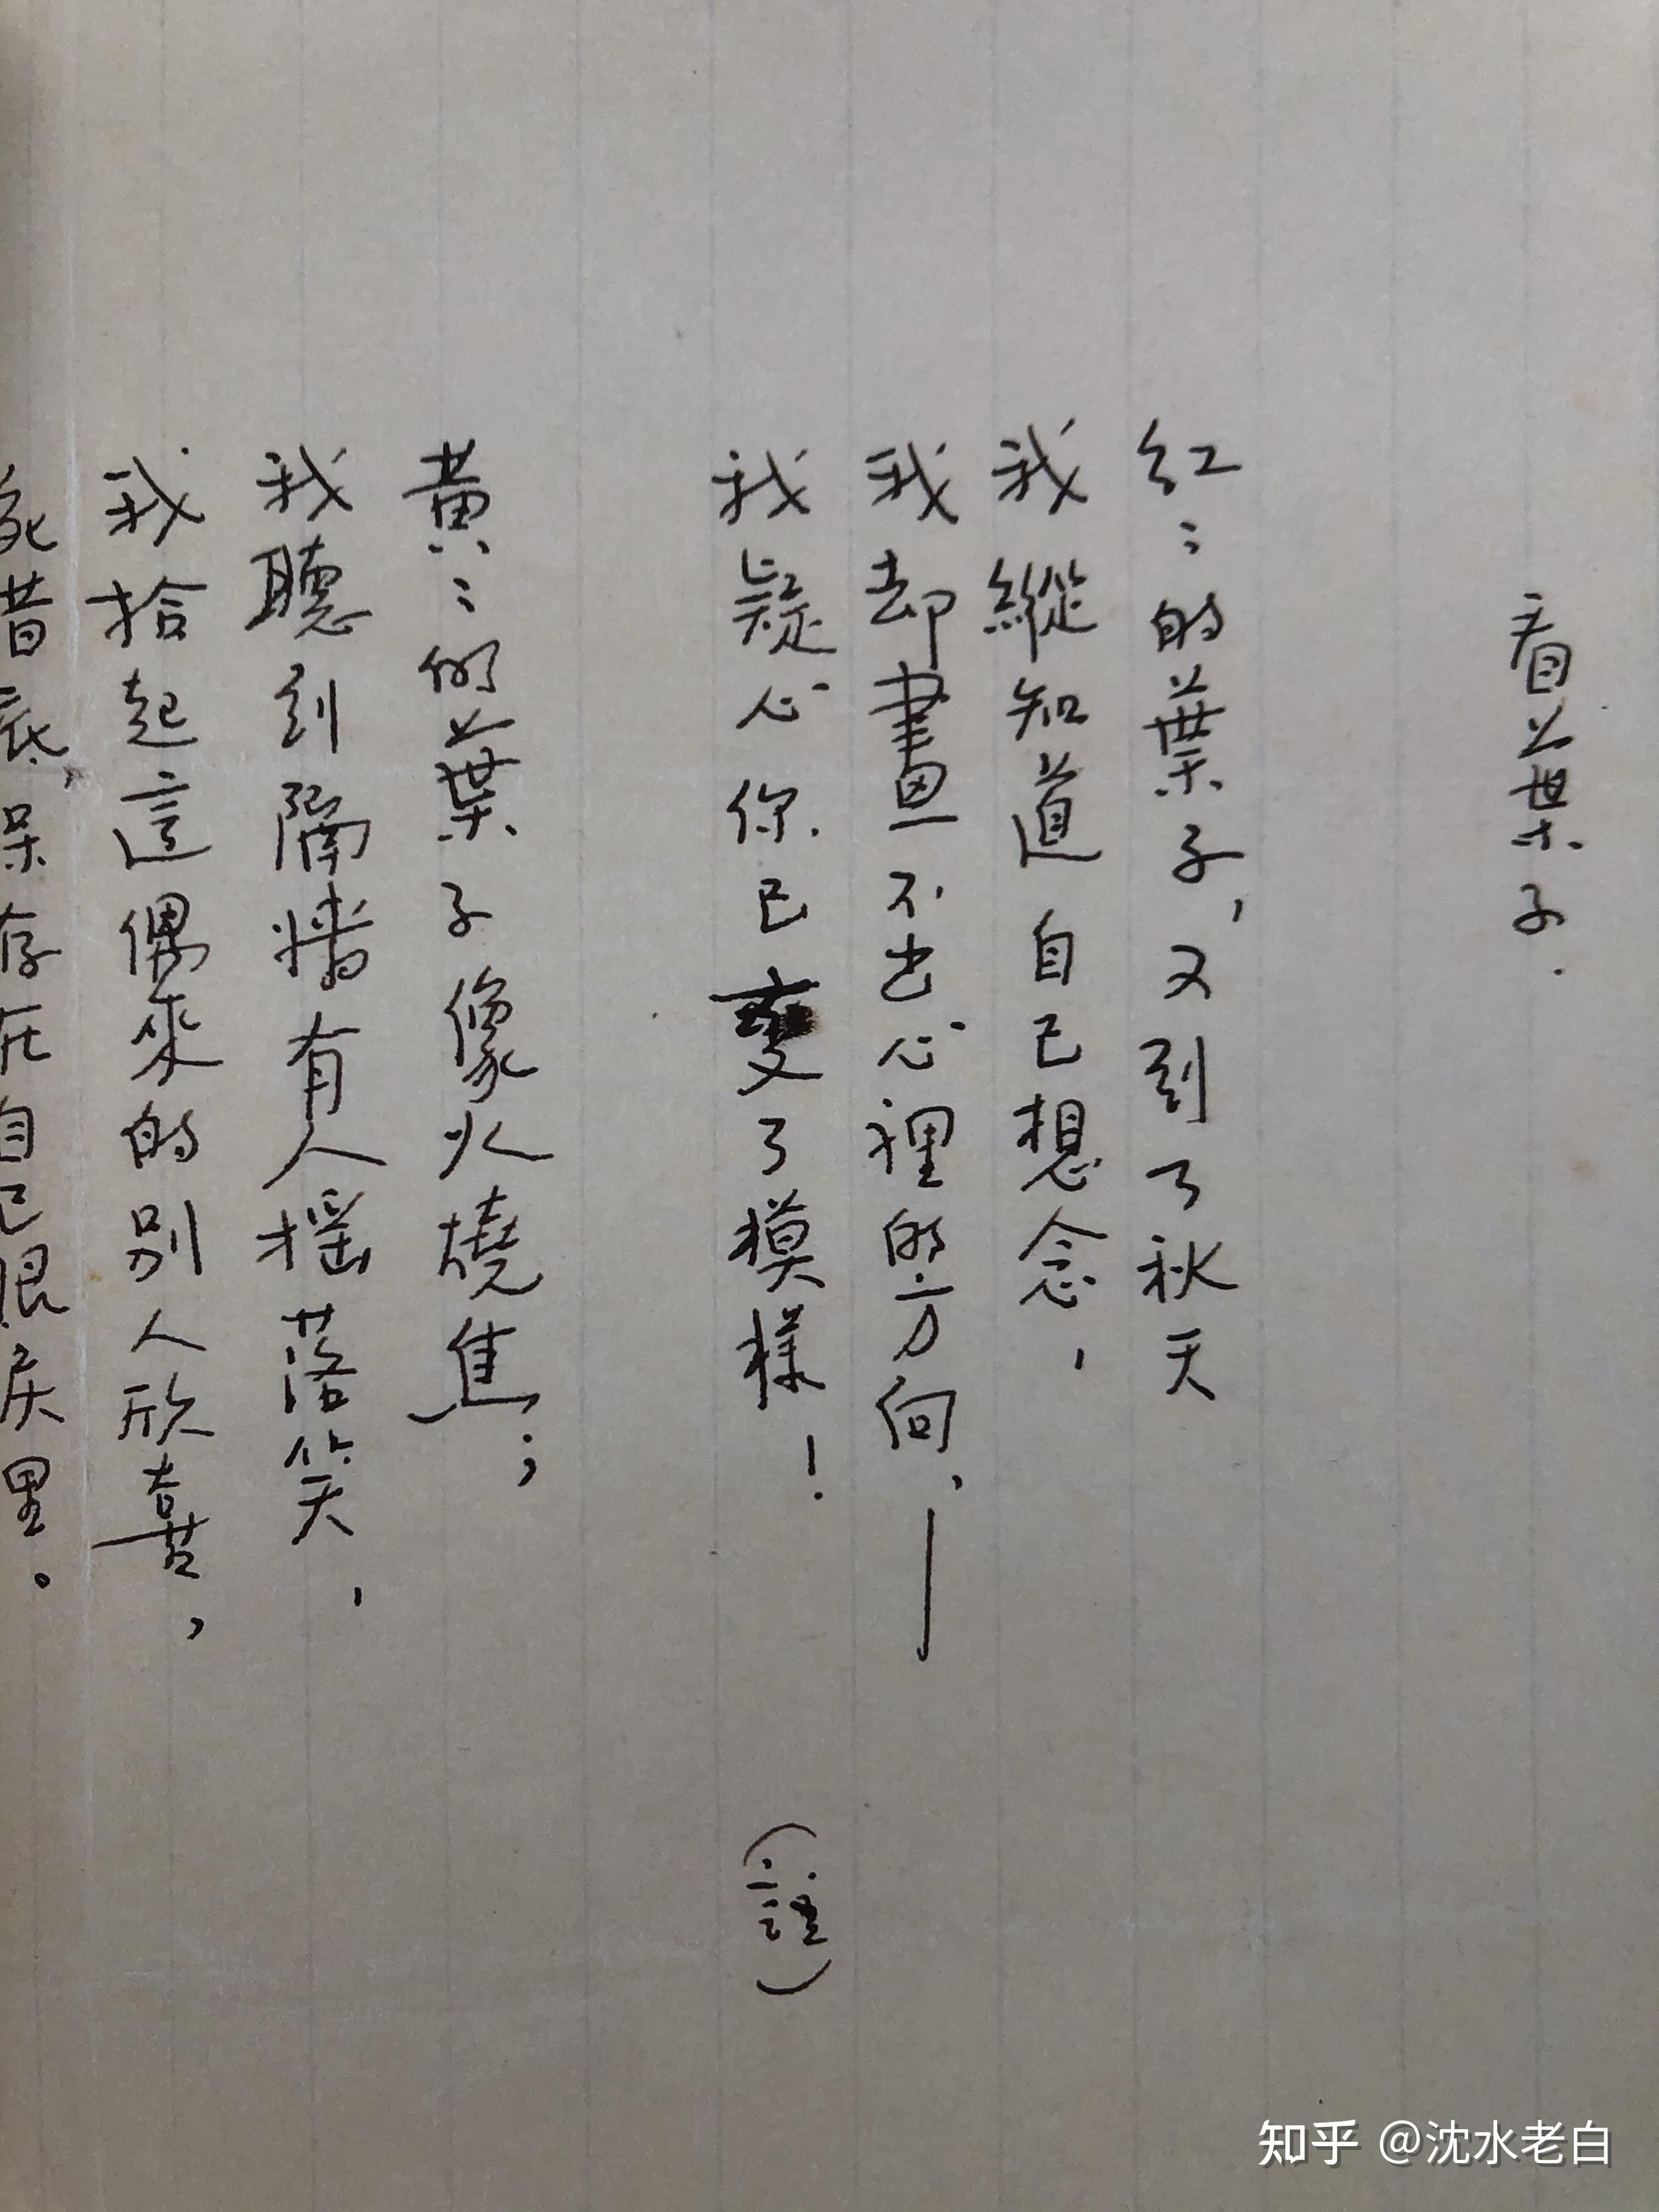 看葉子.
紅〻的葉子，又到了秋天
我縱知道自己想念，
我却畫不出心裡的方向，——
我疑心你已變了模樣！
黃〻的葉子像火燒焦；
我聽到隔墻有人摇落笑，
我拾起這偶來的别人欣喜，
惜底，保存在自己眼戾里。
知乎 @沈水老白